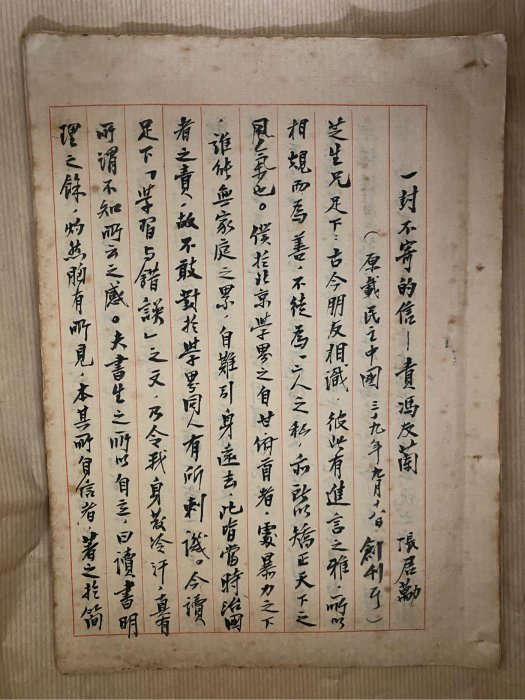 一封不寄的信—責馮友蘭　張君勱
（原載民主中國 三九年九月十六日 創刊号）
芝生兄足下：古今朋友相識，彼此有進言之雅，所以
相規而為善，不徒為一二人之私，亦所以矯正天下之
風氣也。僕於北京學界之自甘俯首者，處暴力之下
，誰能無家庭之累，自難引身遠去，此皆當時治國
者之責，故不敢對於學界同人有所刺譏。今讀
足下「學習与錯誤」之文，乃令我身發冷汗，真有
所謂不知所云之感。夫書生之所以自立，曰讀書明
理之餘，灼然胸有所見，本其所自信者，著之於簡